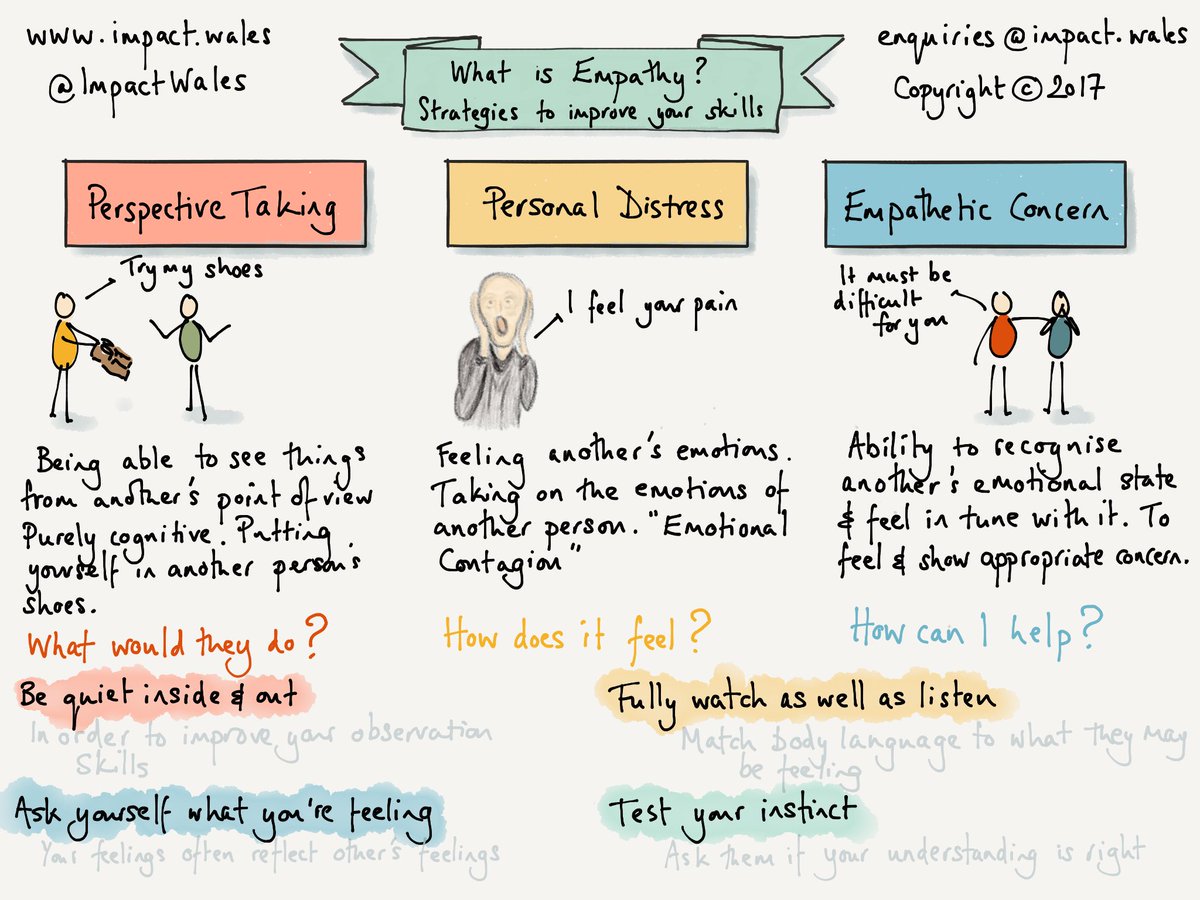 www.impact.wales
@ImpactWales
What is Empathy?
Strategies to improve your skills
enquiries@impact.wales
Copyright © 2017
Perspective Taking
Try my shoes
Being able to see things
from another's point of view
Purely cognitive. Putting
yourself in another person's
shoes.
What would they do?
Personal Distress
I feel your pain
Feeling another's emotions.
Taking on the emotions of
another person. "Emotional
Contagion"
How does it feel?
Empathetic Concern
It must be
difficult
for you
Ability to recognise
another's emotional state
& feel in tune with it. To
feel & show appropriate concern.
How can I help?
Be quiet inside & out
In order to improve your observation
skills
Fully watch as well as listen
Match body language to what they may
be feeling
Ask yourself what you're feeling
Your feelings often reflect other's feelings
Test your instinct
Ask them if your understanding is right